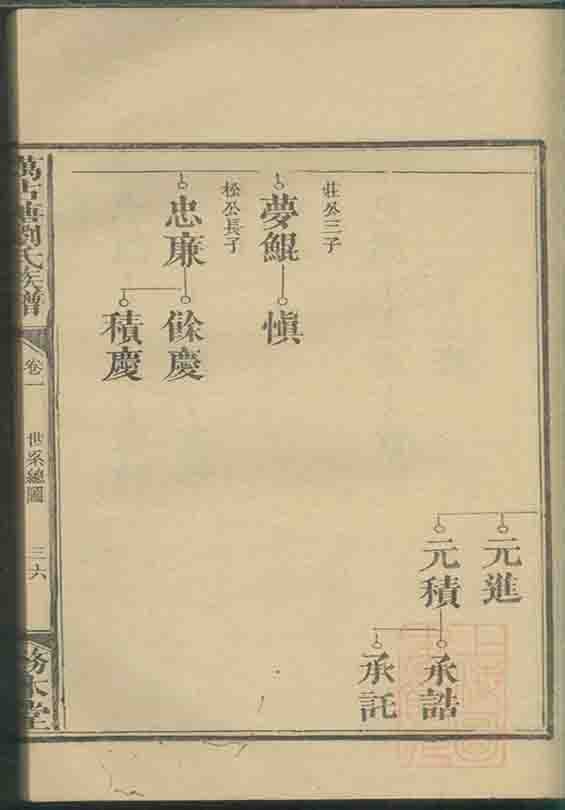 莊公三子
夢鯤
慎
松公長子
忠廉
餘慶
積慶
元進
元積
承誥
承託
萬古塘劉氏族譜
卷一
世系總圖
三六
務本堂